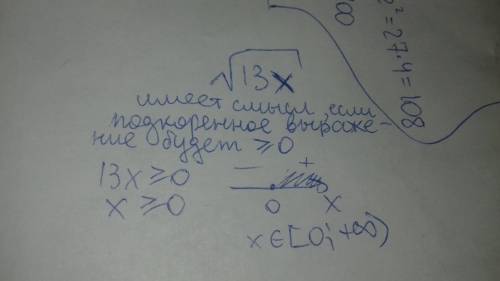 √13x
имеет смысл, если
подкоренное выраже-
ние будет ≥ 0
13x ≥ 0
x ≥ 0
- +
0 x
x ∈ [0; +∞)
² = 27 · 4 = 108
∞